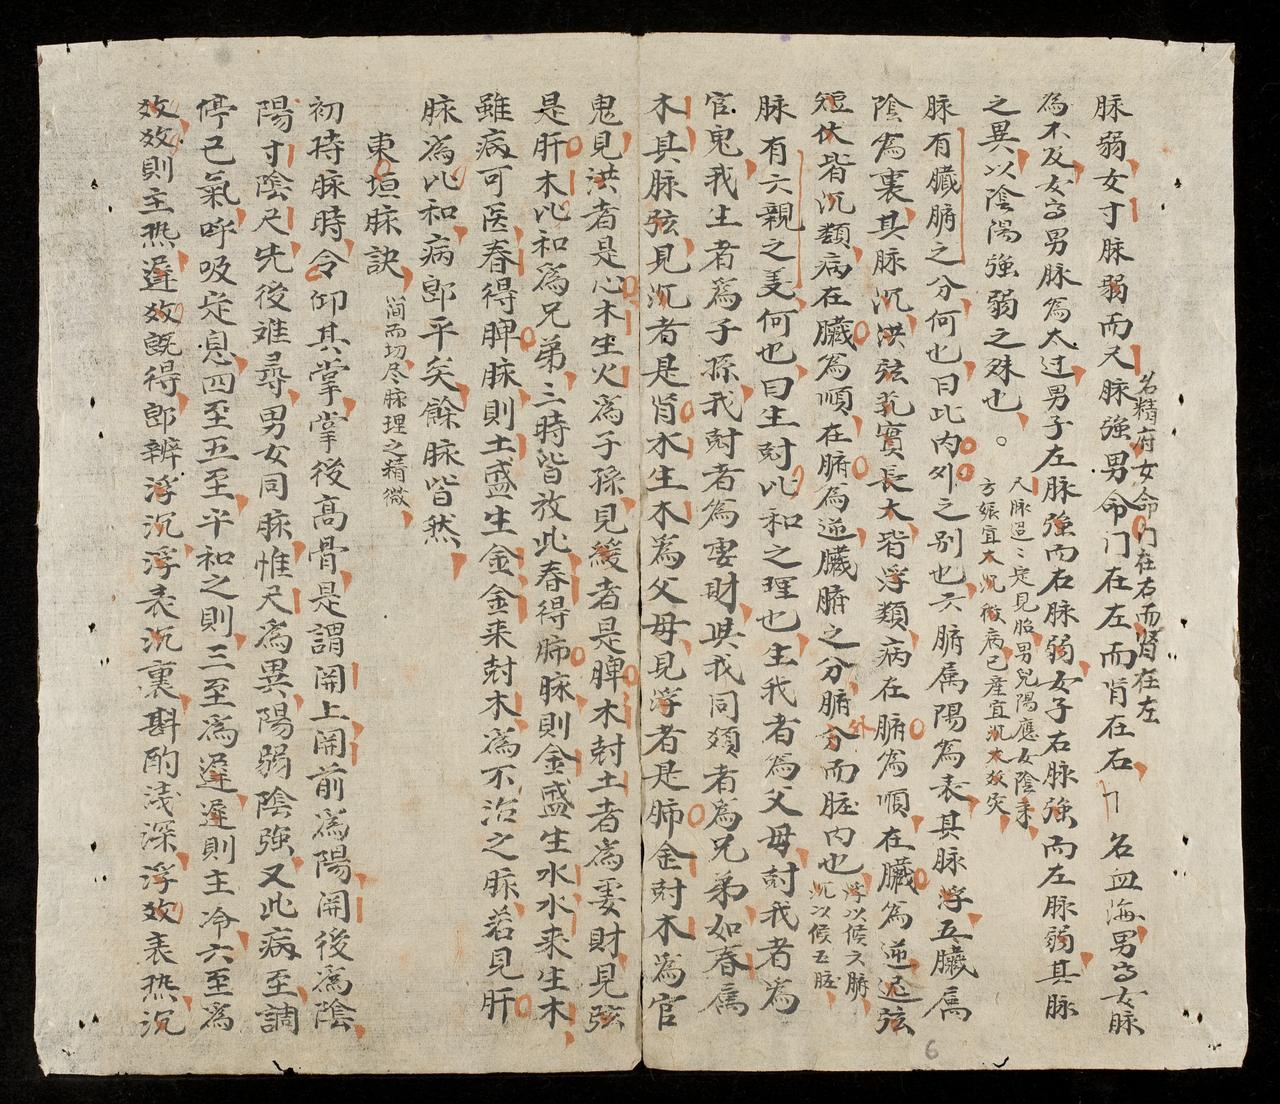 脉弱女寸脉弱而尺脉強男命门在左而肾在右
名血海男得女脉
名精府女命门在右而腎在左
為不及女得男脉為太过男子左脉強而右脉弱女子右脉強而左脉弱其脉
之異以陰陽強弱之殊也
脉有臟腑之分何也曰此内外之别也六腑属陽為表其脉浮五臟属
陰為裏其脉沉洪弦芤實長大皆浮類病在腑為順在臟為逆
短伏皆沉類病在臟為順在腑為逆臟腑之分腑分外而脏内也
浮以候六腑
沉以候五脏
脉有六親之義何也曰生尅比和之理也生我者為父母尅我者為
官鬼我生者為子孫我尅者為妻財與我同類者為兄弟如春属
木其脉弦見沉者是肾水生木為父母見浮者是肺金尅木為官
鬼見洪者是心木生火為子孫見緩者是脾木尅土者為妻財見弦
是肝木比和為兄弟三時皆放此春得肺脉則金盛生水水来生木
雖病可医春得脾脉則土盛生金金来尅木為不治之脉若見肝
脉為比和病即平矣餘脉皆然
東垣脉訣
简而切尽脉理之精微
初時脉時令仰其掌掌後高骨是謂関上関前為陽関後為陰
陽寸陰尺先後难尋男女同脉惟尺為異陽弱陰強又此病至調
停已氣呼吸定息四至五至平和之則三至為遲遲則主冷六至為
效效則主热遲效既得即辨浮沉浮表沉裏斟酌浅深浮效表热沉
6